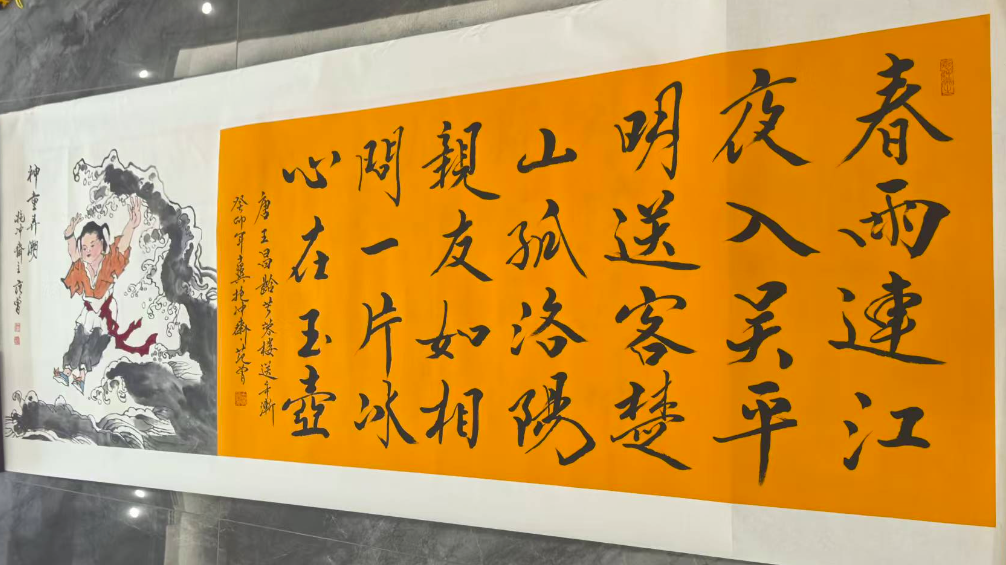 春雨連江
夜入吴平
明送客楚
山孤洛陽
親友如相
問一片冰
心在玉壺
唐王昌齡芙蓉楼送辛漸
癸卯年冀抱冲齋范曾
神童弄
抱冲齋主范曾